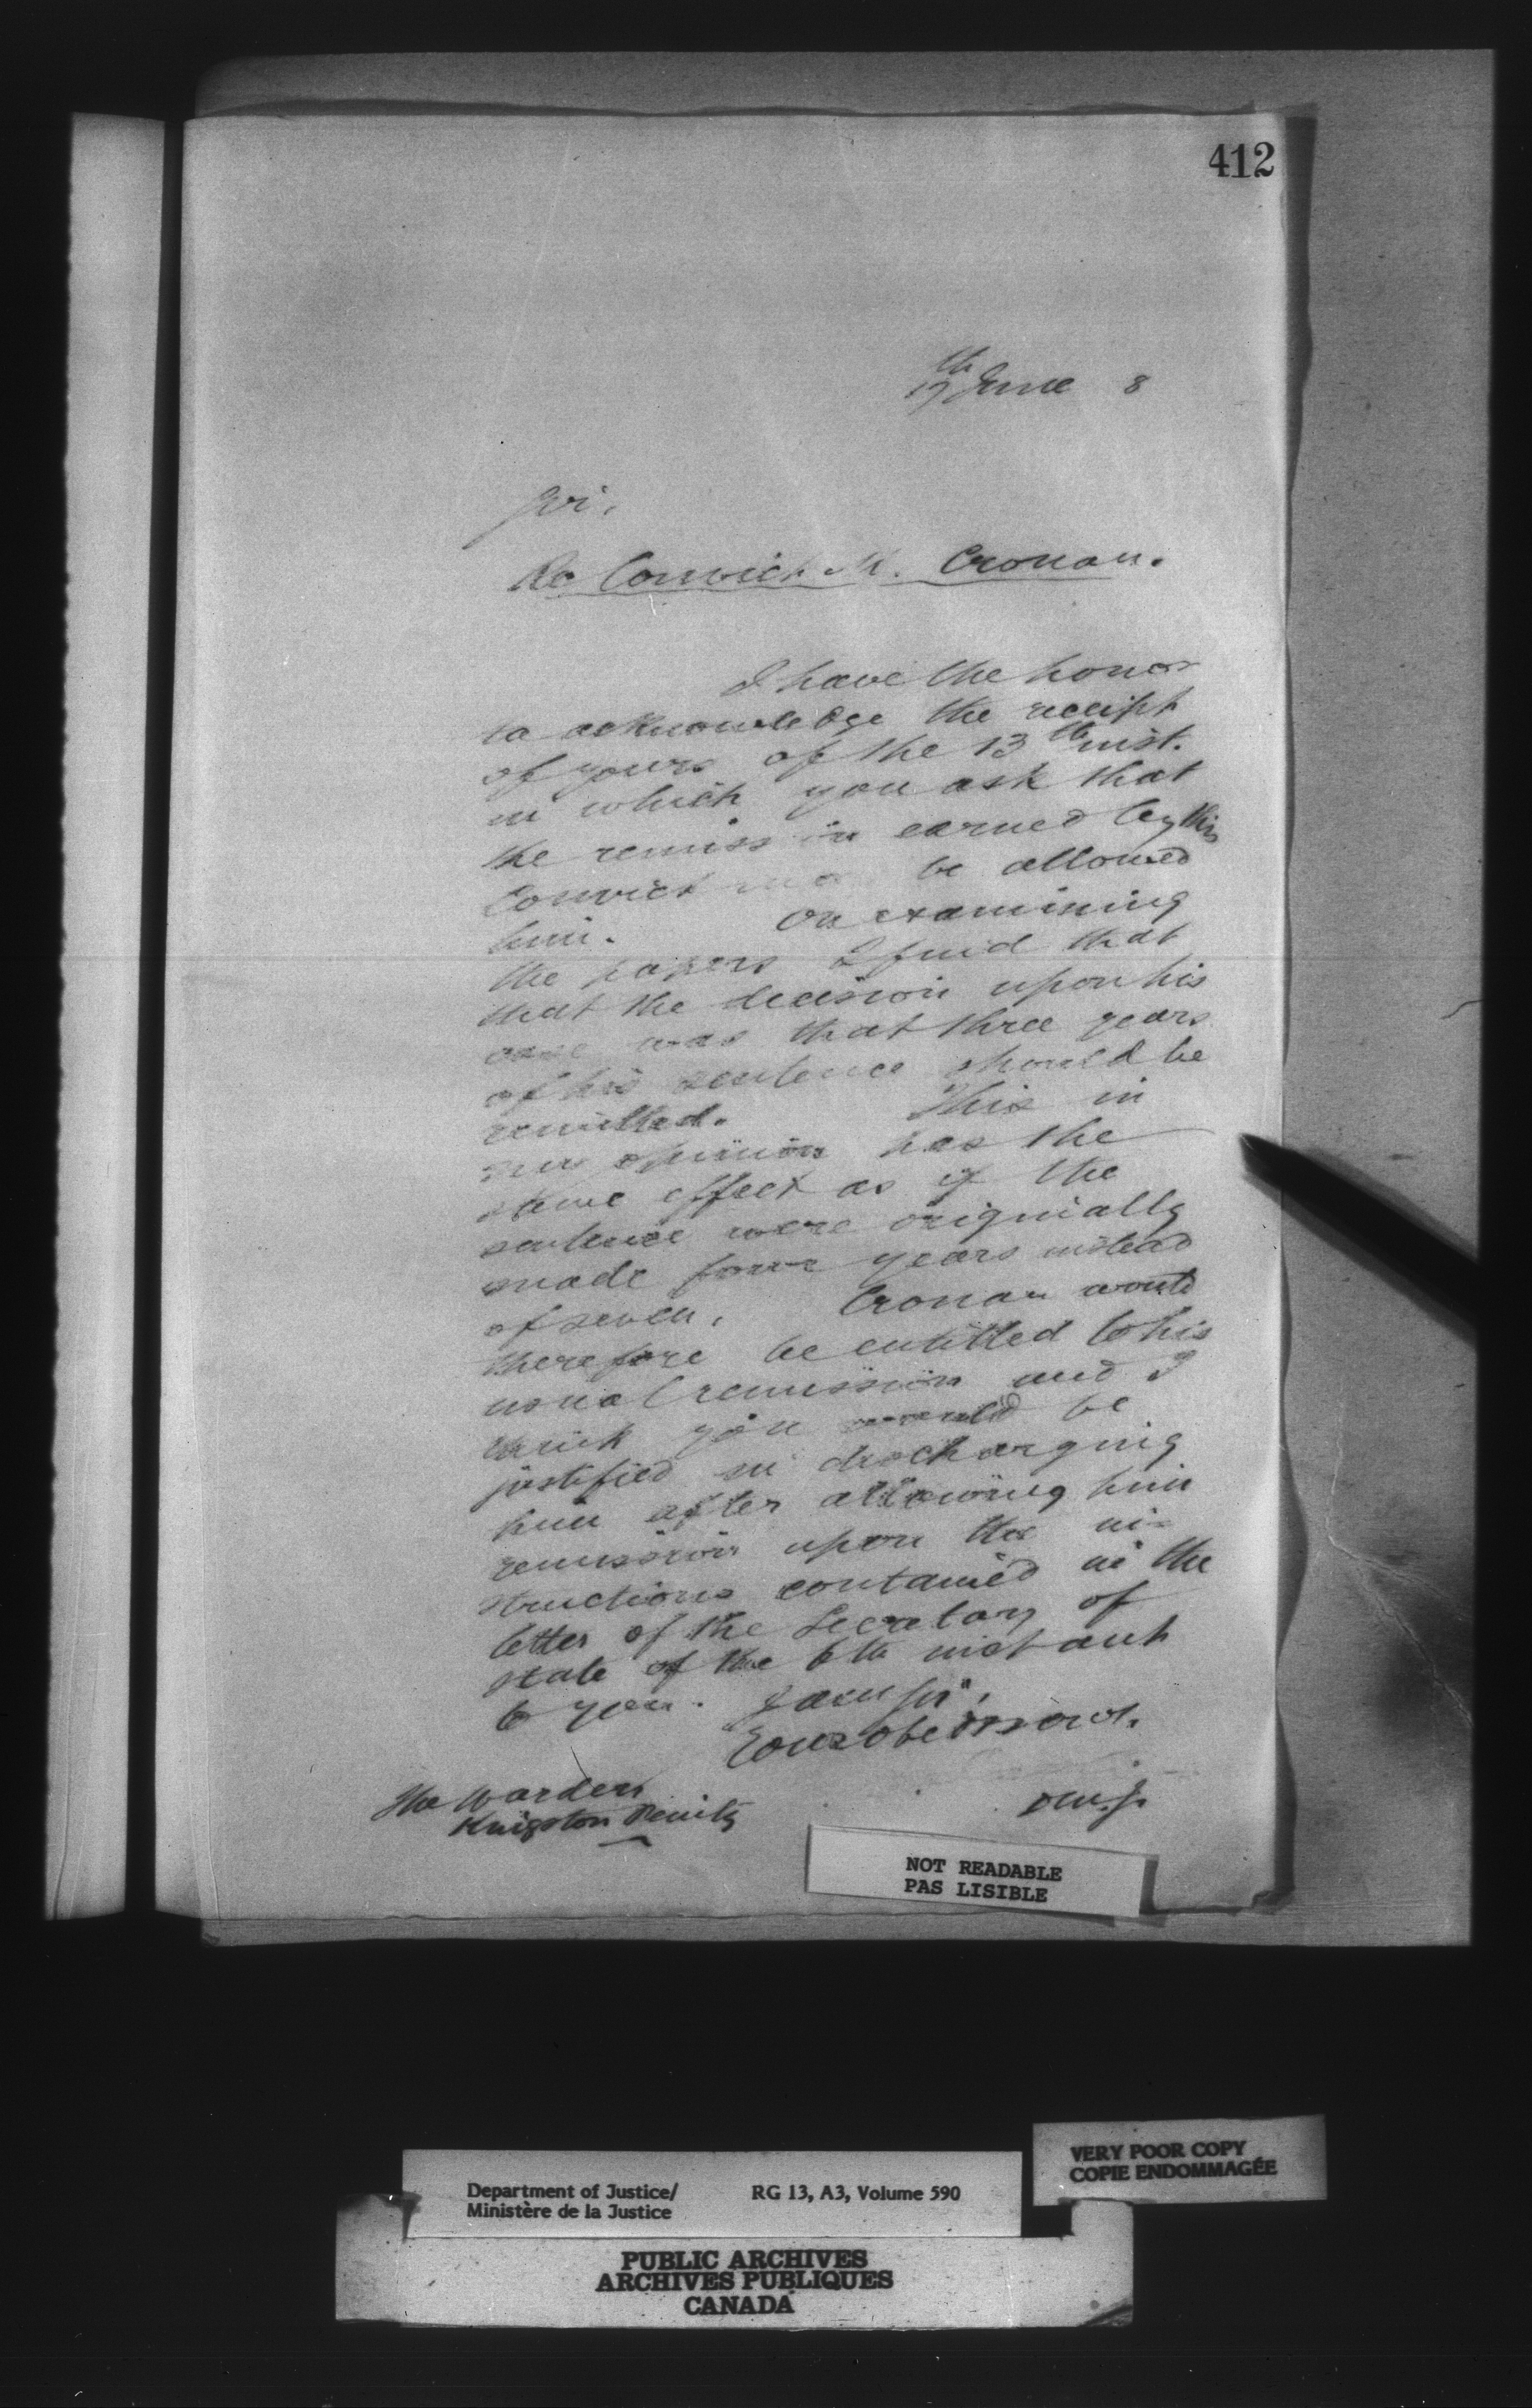 412
17th June 8
Sir,
Re Convict M. Cronan.
I have the honor
to acknowledge the receipt
of yours of the 13th inst.
in which you ask that
the remission earned by this
Convict may be allowed
him. On examining
the papers I find that
that the decision upon his
case was that three years
of his sentence should be
remitted. This in
my opinion has the
same effect as if the
sentence were originally
made four years instead
of seven. Cronan would
therefore be entitled to his
usual remission and I
think you would be
justified in discharging
him after allowing him
remission upon the in-
structions contained in the
letter of the Secretary of
State of the 6th instant
to you. I am Sir,
Your obed serv.
The Warden
Kingston Penity
D.M.J.
NOT READABLE
PAS LISIBLE
VERY POOR COPY
COPIE ENDOMMAGÉE
Department of Justice/ RG 13, A3, Volume 590
Ministère de la Justice
PUBLIC ARCHIVES
ARCHIVES PUBLIQUES
CANADA